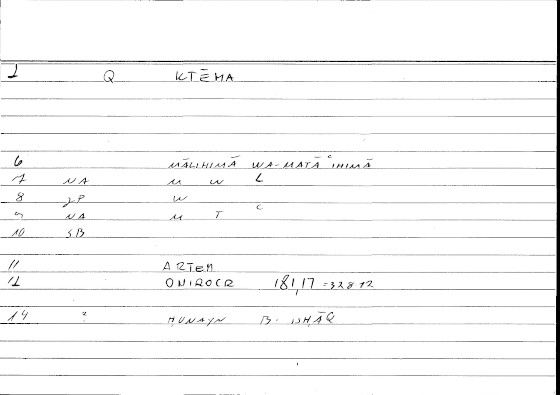 1 Q KTĒMA
6 MĀLIHIMĀ WA-MATĀʿIHIMĀ
7 NA M W L
8 JP W
9 NA M T ʿ
10 SB
11 ARTEM
12 ONIROCR 181,17 =328 12
14 ? ḤUNAYN B. ISḤĀQ